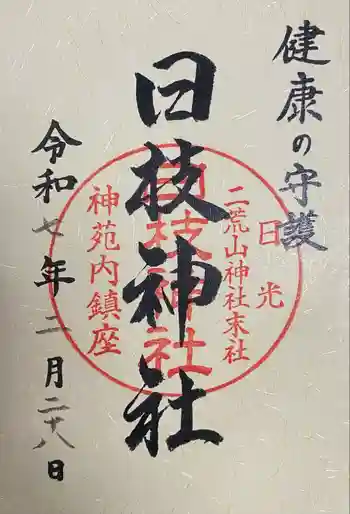 健康の守護
日光
二荒山神社末社
日枝神社
日枝神社
神苑内鎮座
令和七年二月二十八日